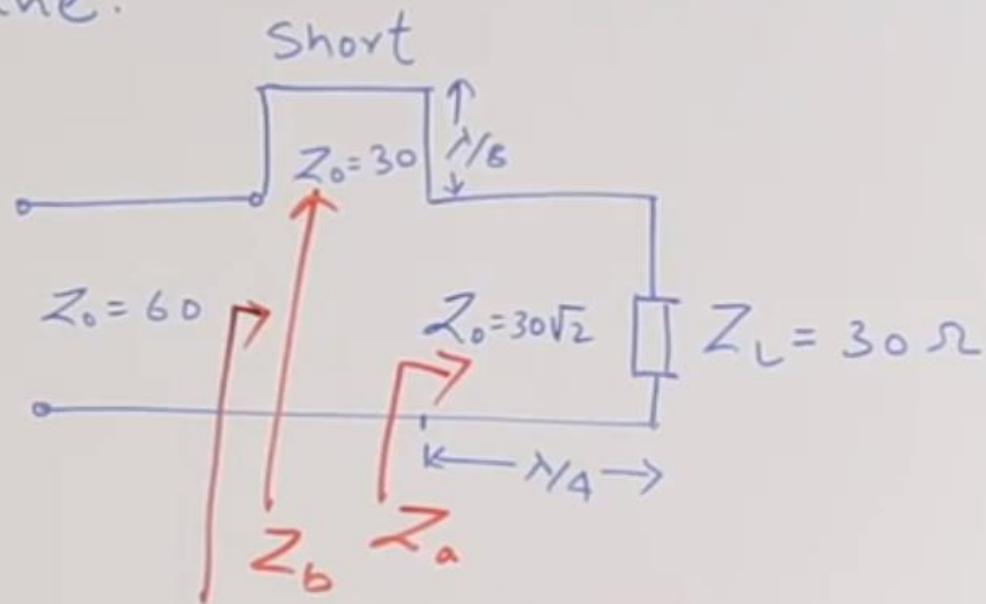 Short
Z₀=30
λ/8
Z₀=60
Z₀=30√2
Z_L=30Ω
λ/4
Z_b
Z_a